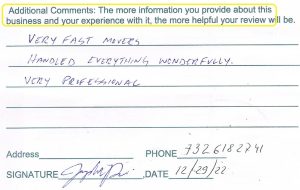 Additional Comments: The more information you provide about this
business and your experience with it, the more helpful your review will be.
VERY FAST MOVERS
HANDLED EVERYTHING WONDERFULLY.
VERY PROFESSIONAL
Address PHONE 7326182741
SIGNATURE ,DATE 12/29/22